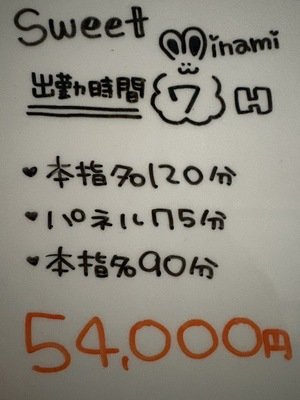 Sweet
Minami
出勤時間 7H
♥本指名120分
♥パネル75分
♥本指名90分
54,000円